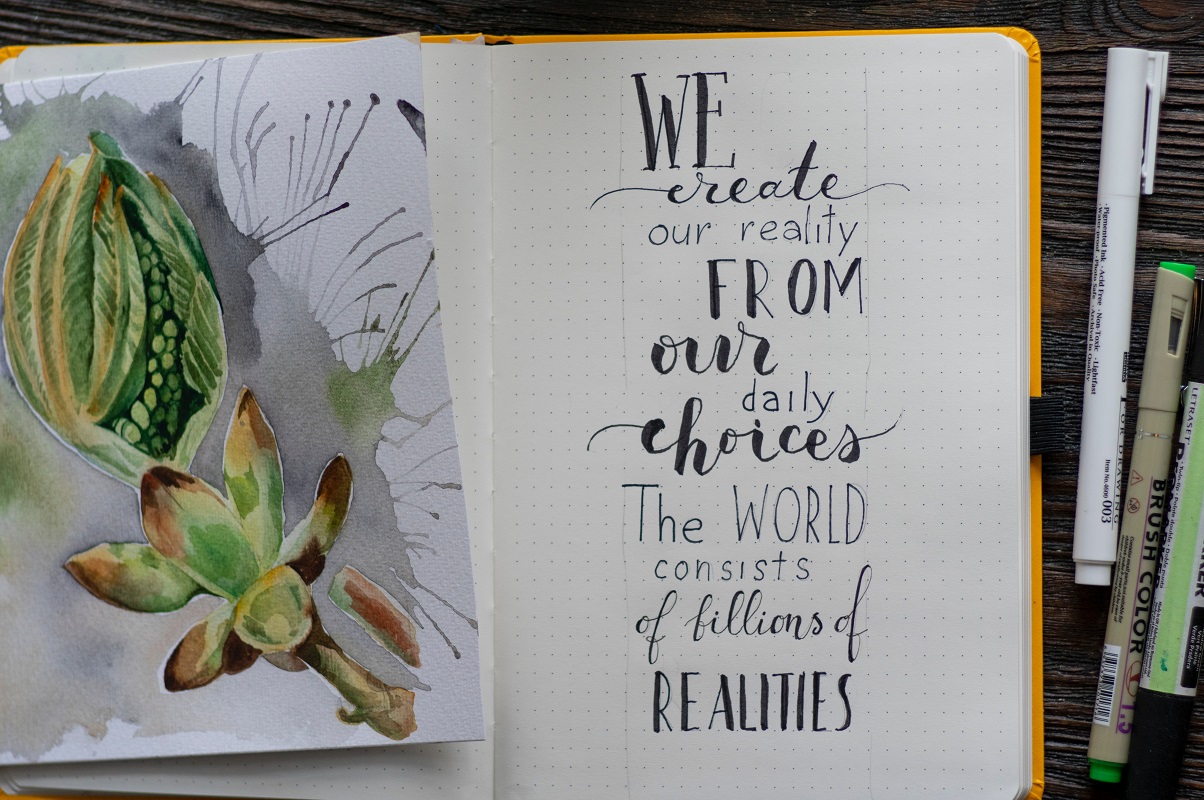 WE
create
our reality
FROM
our
daily
choices
The WORLD
consists
of billions of
REALITIES
·Pigmented Ink ·Acid Free ·Non Toxic ·Lightfast
·Water proof ·Photo Safe ·Archival in Quality
FOR DRAWING
Item No.4600 003
BRUSH COLOR
LETRASET